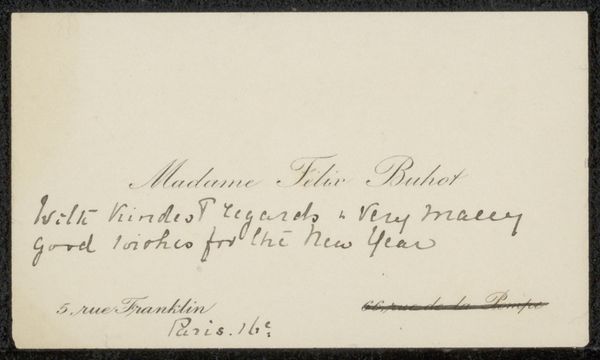 Madame Félix Buhot
With kindest regards & very many
good wishes for the New Year
5, rue Franklin
66, rue de la Pompe
Paris. 16e